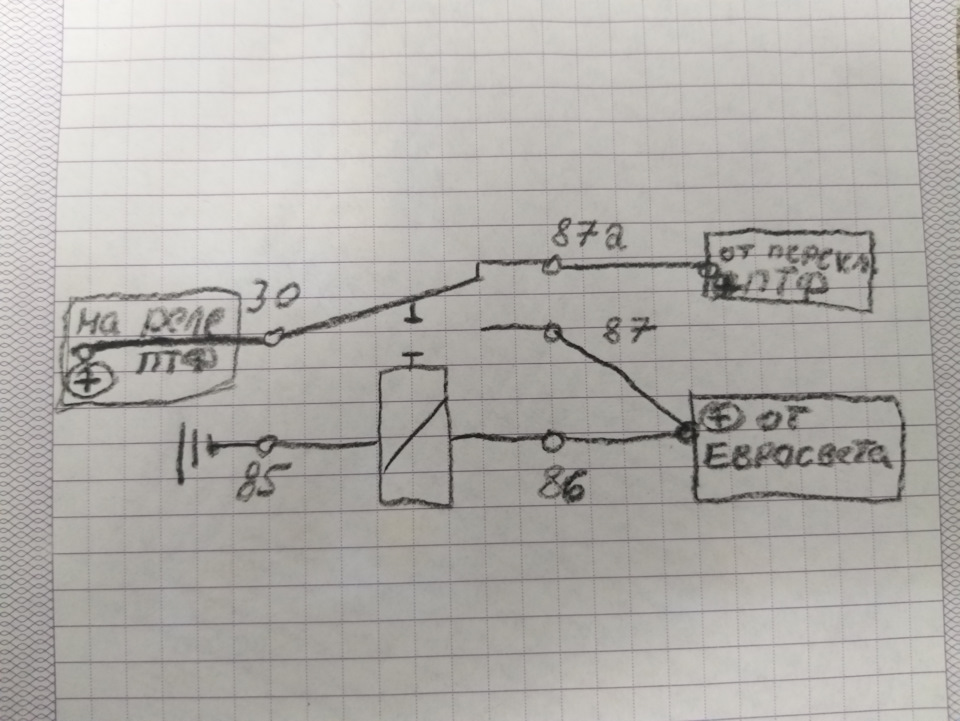 87а
от перекл
ПТФ
30
на реле
ПТФ
+
87
+ от
ЕВРОСВЕТА
85
86